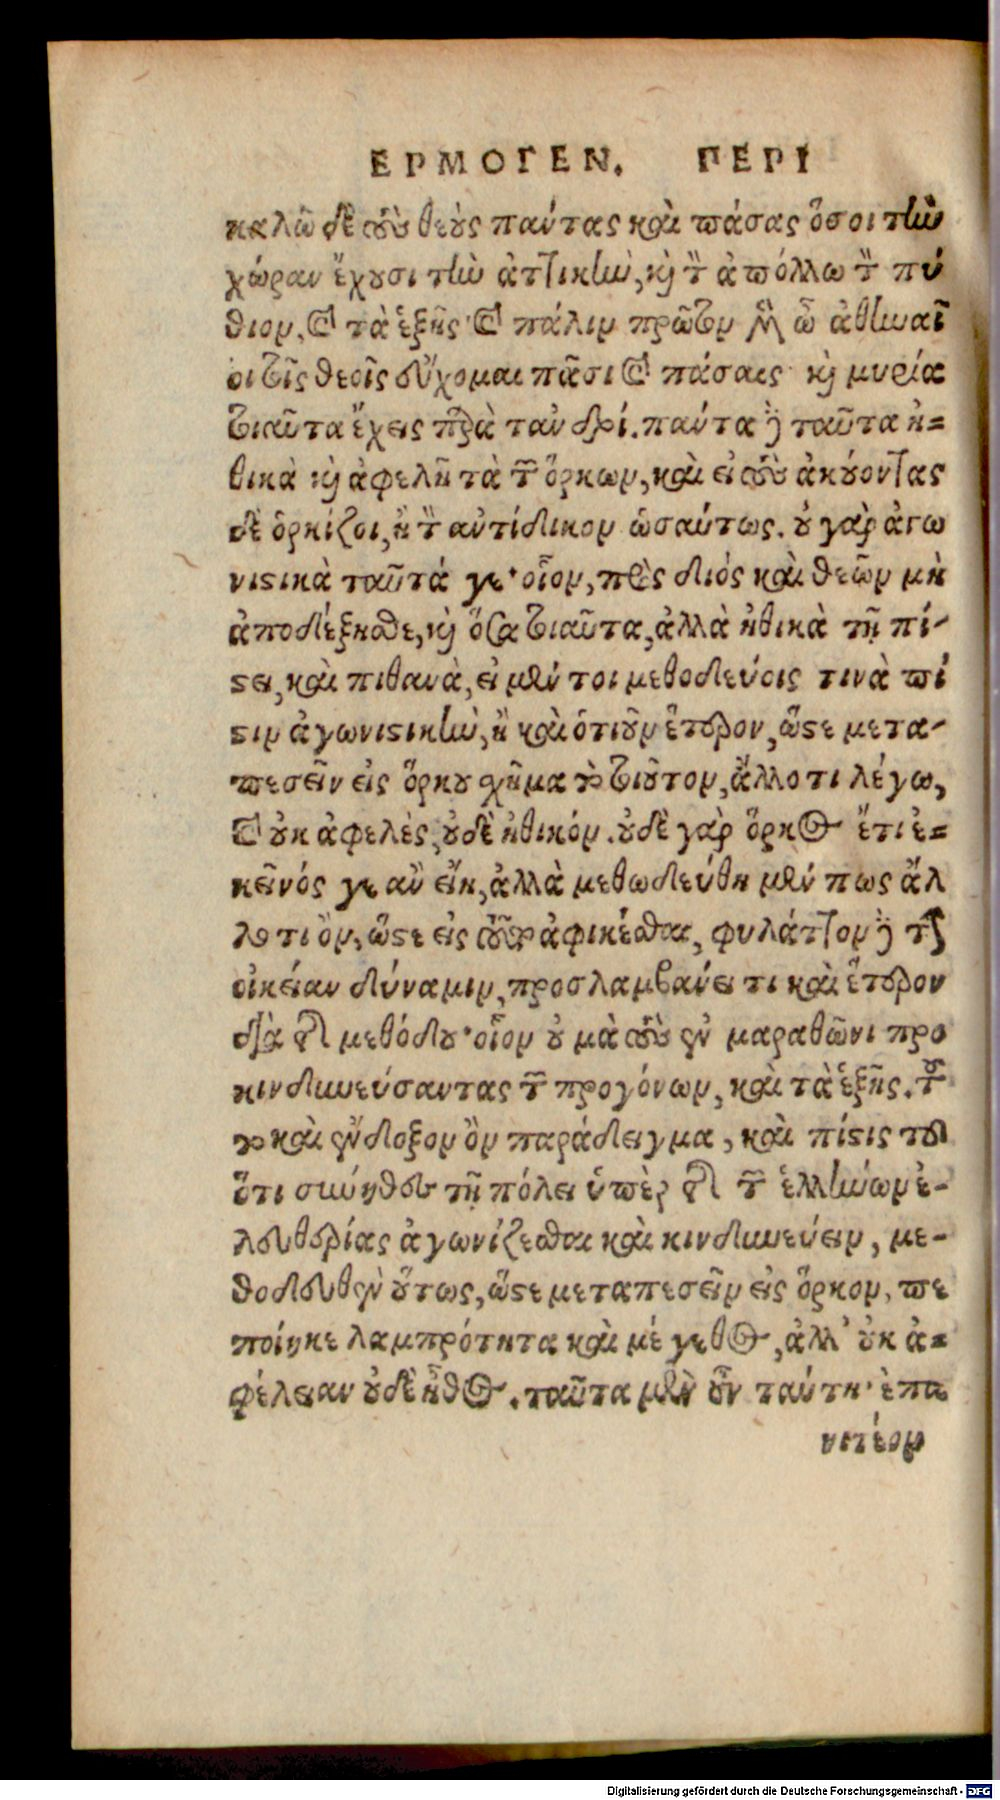 ΕΡΜΟΓΕΝ. ΠΕΡΙ
καλῶ δὲ τοὺς θεοὺς πάντας καὶ πάσας ὅσοι τὴν
χώραν ἔχουσι τὴν ἀττικὴν, καὶ τὸν ἀπόλλω τὸν πύ
θιον, καὶ τὰ ἑξῆς· καὶ πάλιν πρῶτον μὲν ὦ ἀθηναῖ
οι τοῖς θεοῖς εὔχομαι πᾶσι καὶ πάσαις· καὶ μυρία
τοιαῦτα ἔχεις παρὰ τἀνδρί. πάντα δὲ ταῦτα ἠ-
θικὰ καὶ ἀφελῆ τὰ τῶν ὅρκων, καὶ εἰ τοὺς ἀκούοντας
δὲ ὁρκίζοι, ἢ τὸν ἀντίδικον ὡσαύτως. οὐ γὰρ ἀγω
νιστικὰ ταῦτά γε· οἷον, πρὸς διὸς καὶ θεῶν μὴ
ἀποδέξησθε, καὶ ὅσα τοιαῦτα, ἀλλὰ ἠθικὰ τῇ πί-
στει, καὶ πιθανὰ, εἰ μέν τοι μεθοδεύοις τινὰ πί
στιν ἀγωνιστικὴν, ἢ καὶ ὁτιοῦν ἕτερον, ὥστε μετα-
πεσεῖν εἰς ὅρκου σχῆμα τὸ τοιοῦτον, ἄλλο τι λέγω,
καὶ οὐκ ἀφελὲς, οὐδὲ ἠθικόν. οὐδὲ γὰρ ὅρκος ἔτι ἐ-
κεῖνός γε ἂν εἴη, ἀλλὰ μεθωδεύθη μέν πως ἄλ
λο τι ὂν, ὥστε εἰς τοῦτο ἀφικέσθαι, φυλάττον δὲ τὴν
οἰκείαν δύναμιν, προσλαμβάνει τι καὶ ἕτερον
διὰ τῆς μεθόδου· οἷον οὐ μὰ τοὺς ἐν μαραθῶνι προ
κινδυνεύσαντας τῶν προγόνων, καὶ τὰ ἑξῆς. τοῦ
το καὶ ἔνδοξον ὂν παράδειγμα, καὶ πίστις τοῦ
ὅτι σύνηθες τῇ πόλει ὑπὲρ τῆς τῶν ἑλλήνων ἐ-
λευθερίας ἀγωνίζεσθαι καὶ κινδυνεύειν, με-
θοδευθὲν οὕτως, ὥστε μεταπεσεῖν εἰς ὅρκον, πε
ποίηκε λαμπρότητα καὶ μέγεθος, ἀλλ' οὐκ ἀ-
φέλειαν οὐδὲ ἦθος. ταῦτα μὲν οὖν ταύτῃ· ἐπα
νιτέον
Digitalisierung gefördert durch die Deutsche Forschungsgemeinschaft - DFG